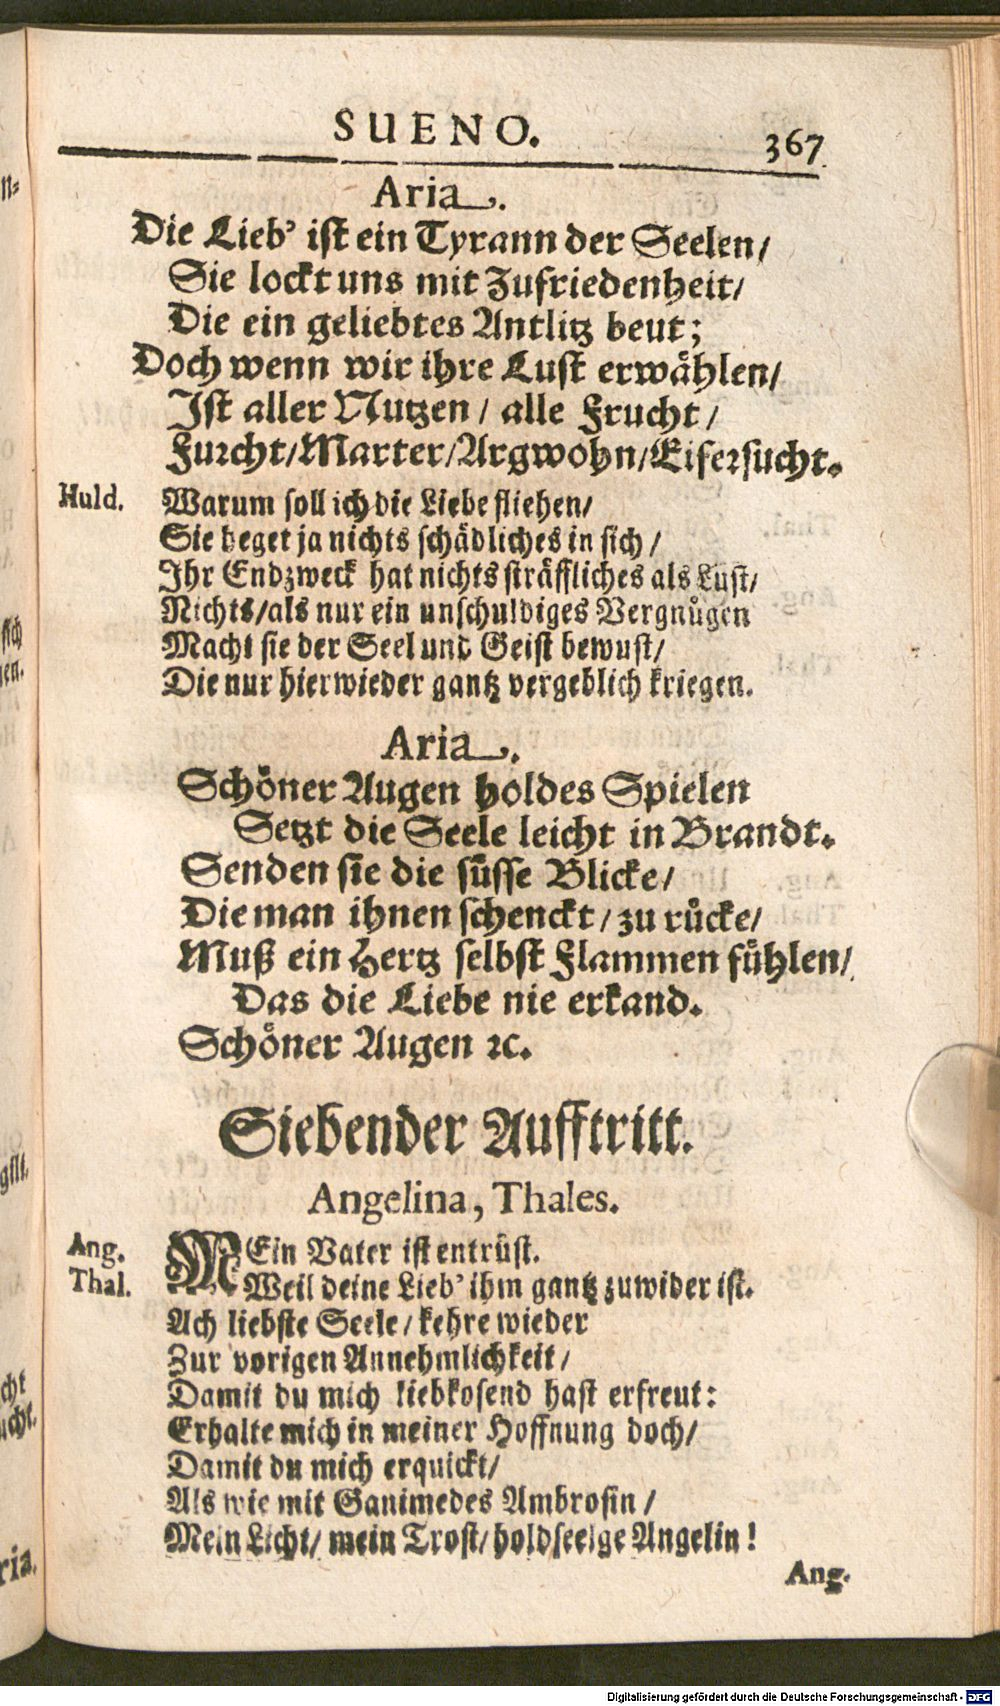 SUENO. 367
Aria.
Die Lieb' ist ein Tyrann der Seelen/
Sie lockt uns mit Zufriedenheit/
Die ein geliebtes Antlitz beut;
Doch wenn wir ihre Lust erwählen/
Ist aller Nutzen / alle Frucht /
Furcht/Marter/Argwohn/Eifersucht.
Huld. Warum soll ich die Liebe fliehen/
Sie heget ja nichts schädliches in sich /
Ihr Endzweck hat nichts sträffliches als Lust/
Nichts/als nur ein unschuldiges Vergnügen
Macht sie der Seel und Geist bewust/
Die nur hierwieder gantz vergeblich kriegen.
Aria.
Schöner Augen holdes Spielen
Setzt die Seele leicht in Brandt.
Senden sie die süsse Blicke/
Die man ihnen schenckt / zu rücke/
Muß ein Hertz selbst Flammen fühlen/
Das die Liebe nie erkand.
Schöner Augen ꝛc.
Siebender Aufftritt.
Angelina, Thales.
Ang. MEin Vater ist entrüst.
Thal. Weil deine Lieb' ihm gantz zuwider ist.
Ach liebste Seele / kehre wieder
Zur vorigen Annehmlichkeit /
Damit du mich liebkosend hast erfreut:
Erhalte mich in meiner Hoffnung doch/
Damit du mich erquickt/
Als wie mit Ganimedes Ambrosin /
Mein Licht/ mein Trost/ holdseelge Angelin!
Ang.
Digitalisierung gefördert durch die Deutsche Forschungsgemeinschaft - DFG